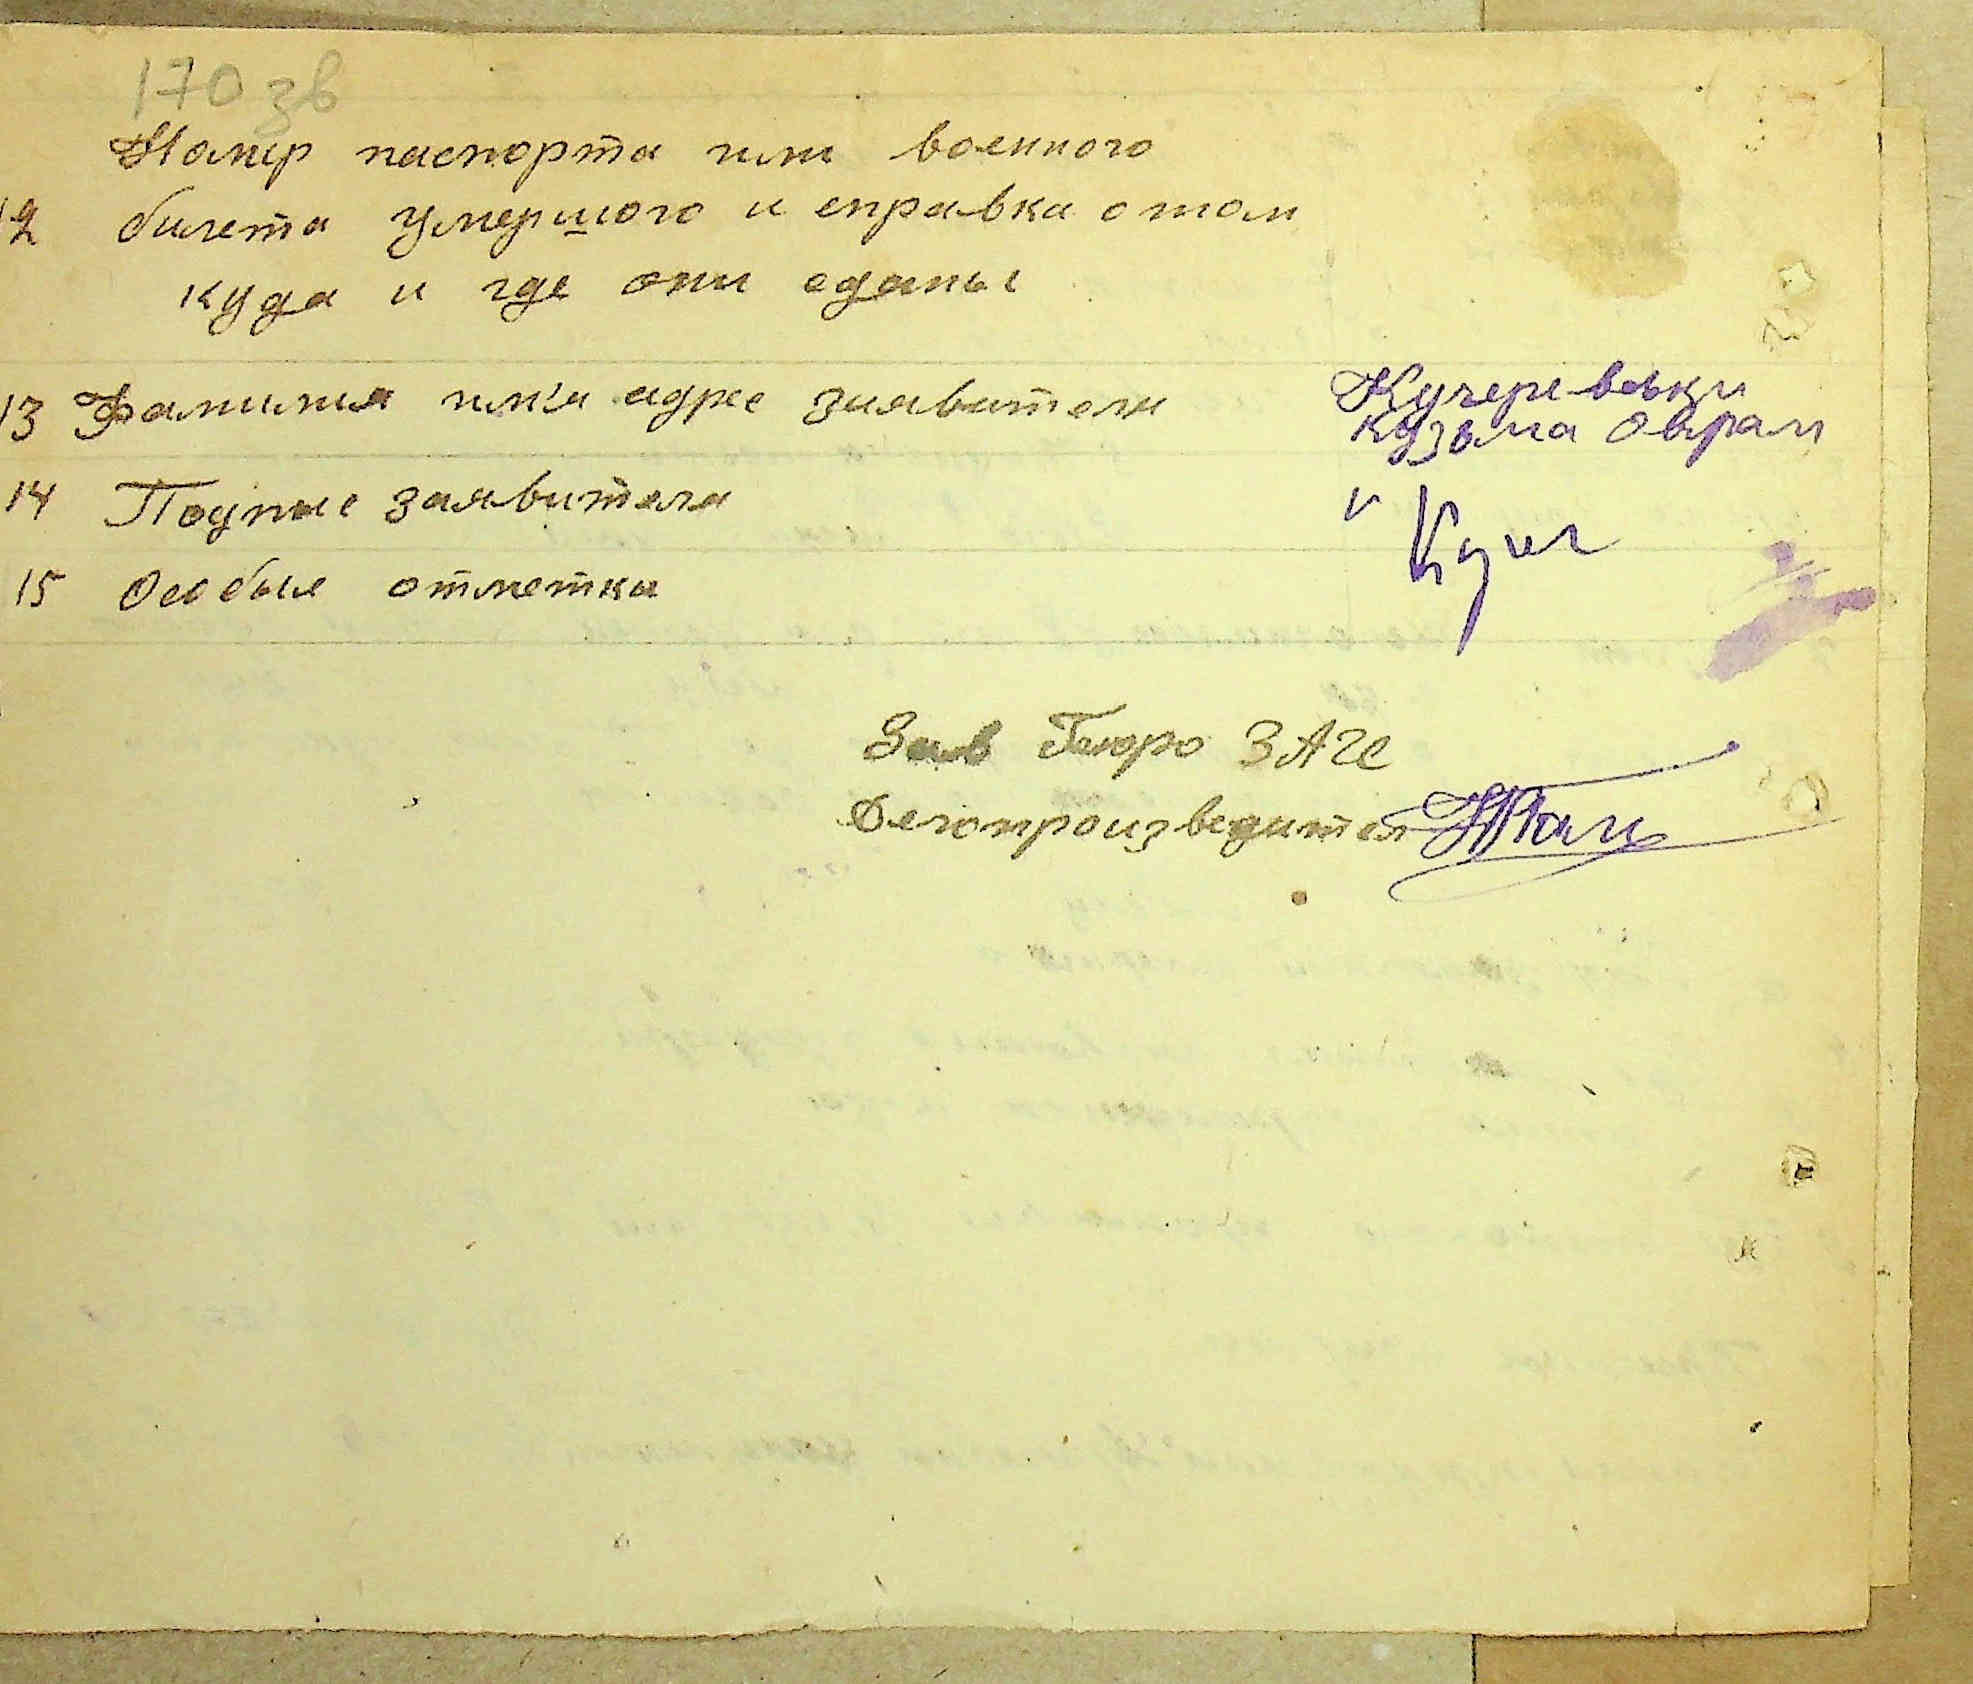 170 зв
Номер паспорта или военного
12 билета умершого и справка о том
куда и где они сданы
13 Фамилия имя адрес заявителя
Кучеревськи
Кузьма Оврам
14 Подпись заявителя
и Куче
15 Особые отметки
Зав Бюро ЗАГС
Делопроизводител